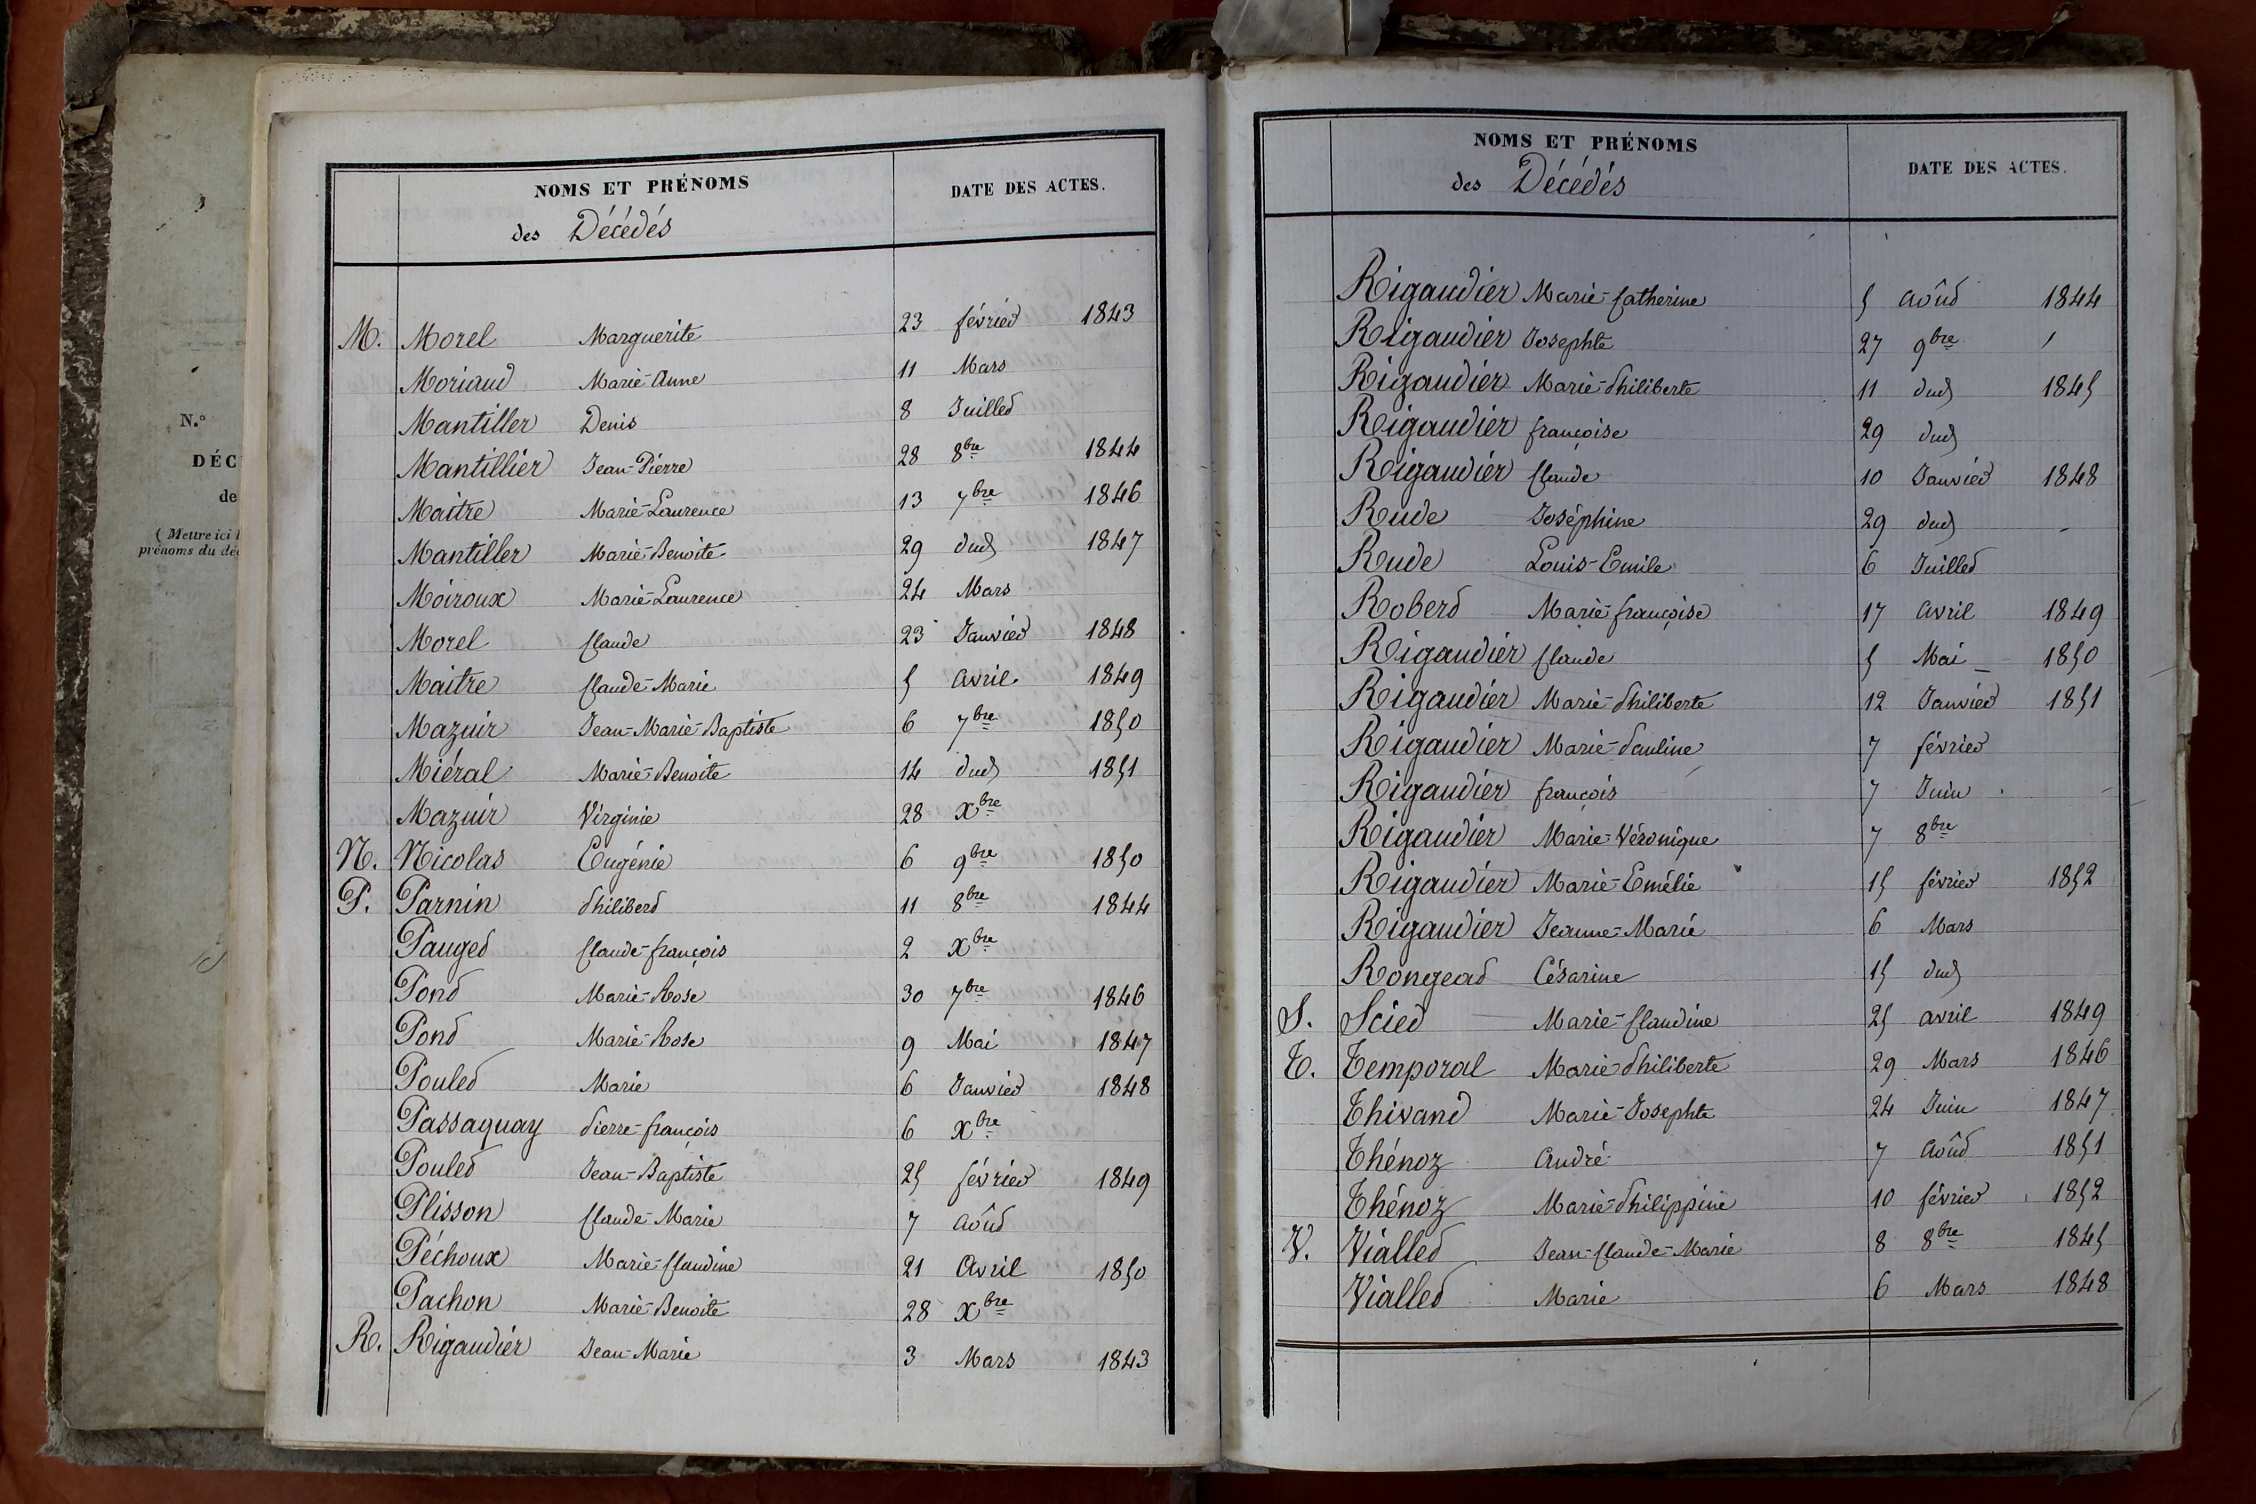 N.o
DÉC
de
( Mettre ici l
prénoms du déc
NOMS ET PRÉNOMS
DATE DES ACTES.
des Décédés
M. Morel Marguerite 23 février 1843
Moriaud Marie-Anne 11 Mars
Mantiller Denis 8 Juillet
Mantillier Jean-Pierre 28 8bre 1844
Maitre Marie-Laurence 13 7bre 1846
Mantiller Marie-Benoite 29 dud 1847
Moiroux Marie-Laurence 24 Mars
Morel Claude 23 Janvier 1848
Maitre Claude-Marie 5 avril 1849
Mazuir Jean-Marie-Baptiste 6 7bre 1850
Miéral Marie-Benoite 14 dud 1851
Mazuir Virginie 28 Xbre
N. Nicolas Eugénie 6 9bre 1850
P. Parnin Philibert 11 8bre 1844
Pauget Claude-françois 2 Xbre
Pont Marie-Rose 30 7bre 1846
Pont Marie-Rose 9 Mai 1847
Poulet Marie 6 Janvier 1848
Passaquay Pierre-françois 6 Xbre
Poulet Jean-Baptiste 25 février 1849
Plisson Claude-Marie 7 Août
Péchoux Marie-Claudine 21 Avril 1850
Pachon Marie-Benoite 28 Xbre
R. Rigaudier Jean-Marie 3 Mars 1843
NOMS ET PRÉNOMS
DATE DES ACTES.
des Décédés
Rigaudier Marie-Catherine 5 Août 1844
Rigaudier Josephte 27 9bre
Rigaudier Marie-Philiberte 11 dud 1845
Rigaudier françoise 29 dud
Rigaudier Claude 10 Janvier 1848
Rude Joséphine 29 dud -
Rude Louis-Emile 6 Juillet
Robert Marie-françoise 17 avril 1849
Rigaudier Claude 5 Mai 1850
Rigaudier Marie-Philiberte 12 Janvier 1851
Rigaudier Marie-Pauline 7 février
Rigaudier françois 7 Juin -
Rigaudier Marie-Véronique 7 8bre
Rigaudier Marie-Emélie 15 février 1852
Rigaudier Jeanne-Marie 6 Mars
Rongeat Césarine 15 dud
S. Sciet Marie-Claudine 25 avril 1849
T. Temporal Marie-Philiberte 29 Mars 1846
Thivant Marie-Josephte 24 Juin 1847
Thénoz André 7 Août 1851
Thénoz Marie-Philippine 10 février 1852
V. Viallet Jean-Claude-Marie 8 8bre 1845
Viallet Marie 6 Mars 1848